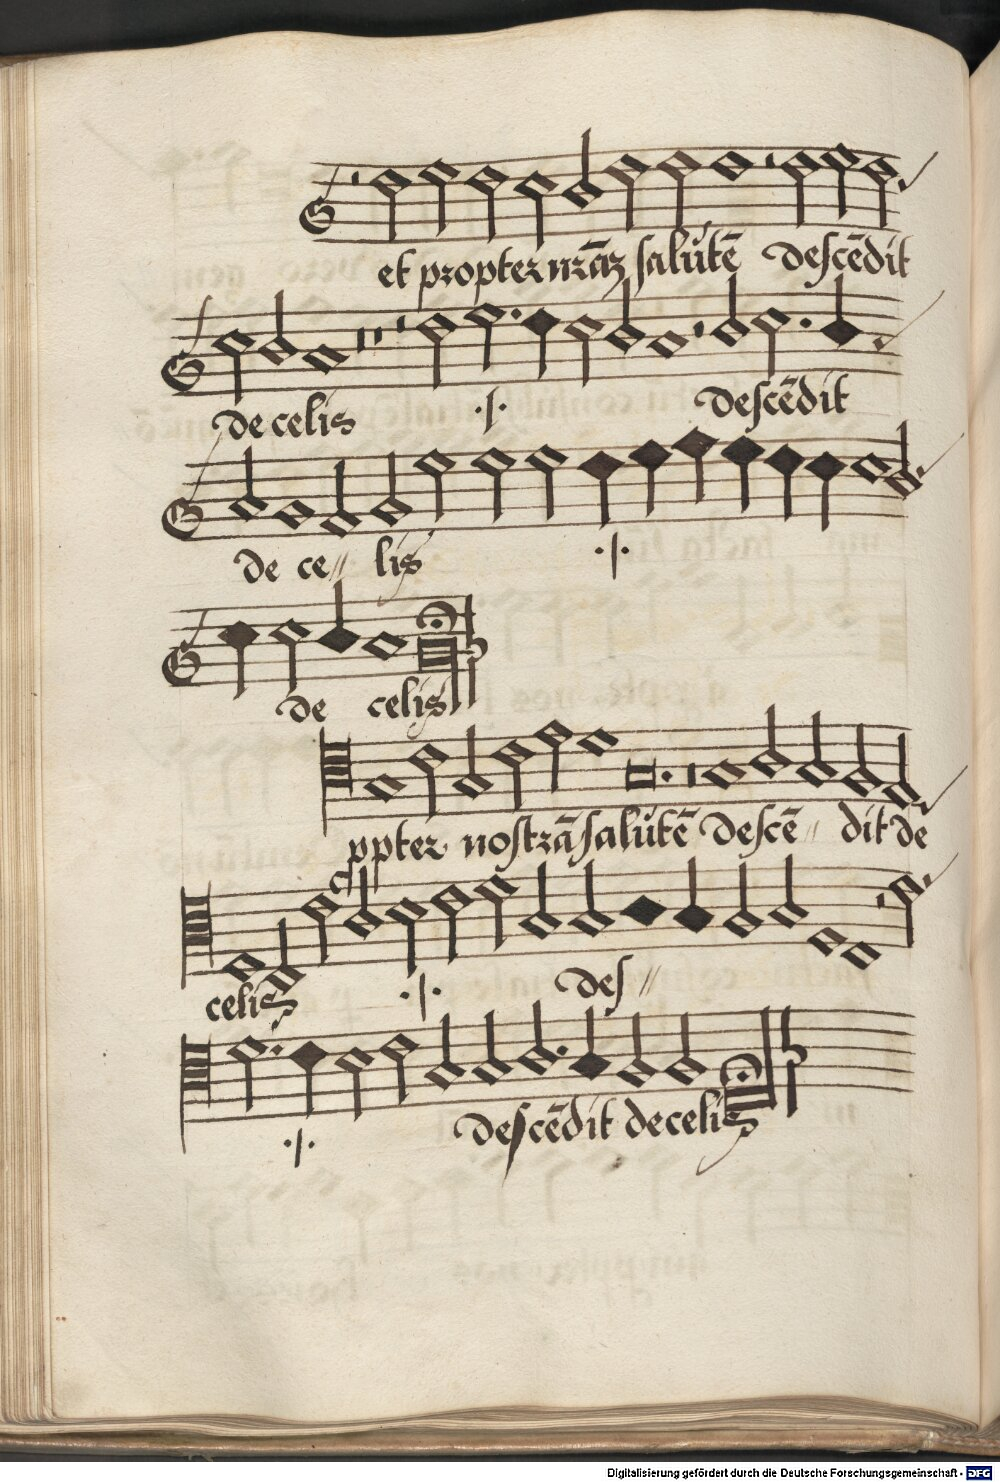 et propter nr̄aʒ salutē descēdit
de celis ·/· descēdit
de ce〃 lis ·/·
de celis
ppter nostrā salutē descē〃 dit de
celis ·/· des〃
·/· descēdit de celis
Digitalisierung gefördert durch die Deutsche Forschungsgemeinschaft - DFG